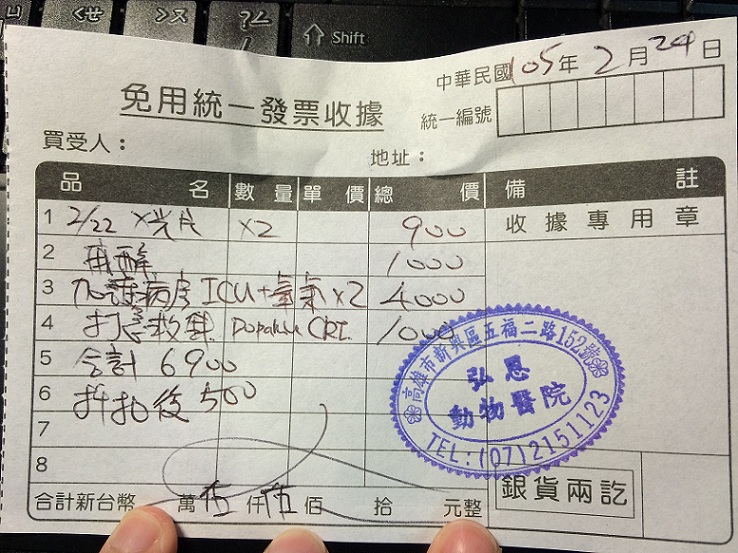 Shift
中華民國105年2月24日
免用統一發票收據
統一編號
買受人：
地址：
品名 數量 單價 總價 備註
1 2/22 X光片 X2 900 收據專用章
2 麻醉 1000
3 加護病房 ICU+氧氣 X2 4000
4 打急救 CRI 1000
5 合計 6900
6 折扣後 500
7
8
高雄市新興區五福二路152號
弘恩
動物醫院
TEL:(07)2151123
合計新台幣 萬伍仟伍佰 拾 元整
銀貨兩訖